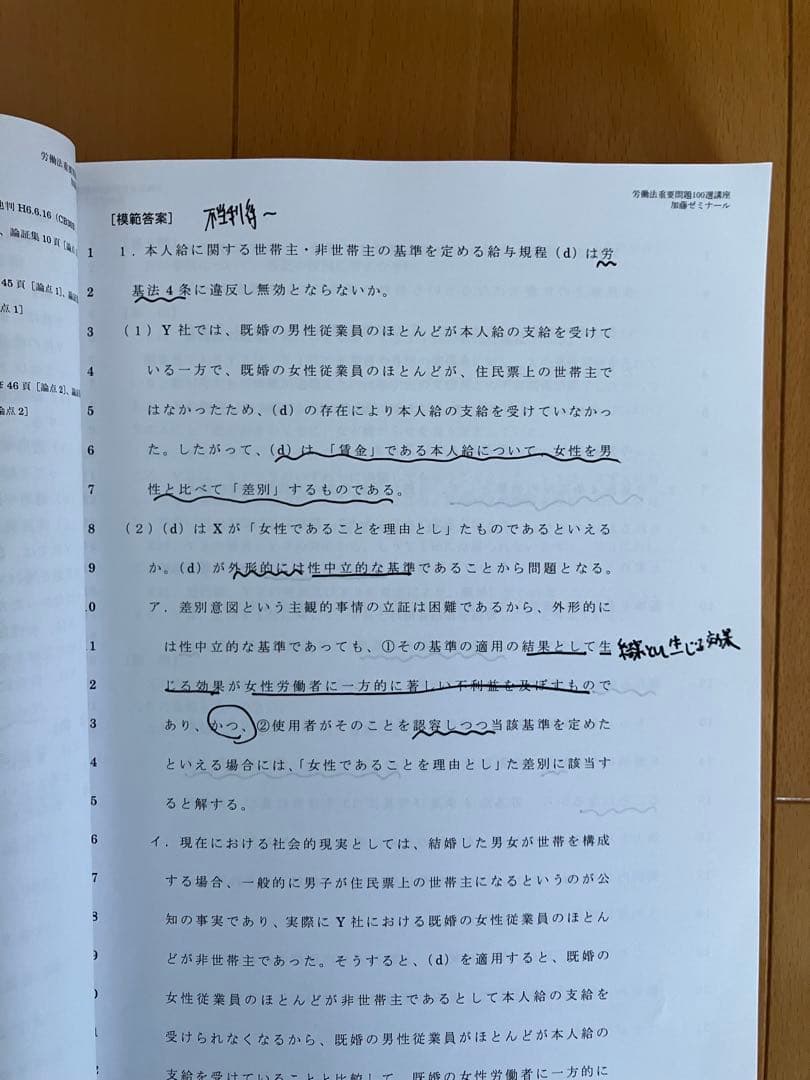 労働法重要問
地判H6.6.16（CB
、論証集10頁［論点
45頁［論点1］、論
点1］
46頁［論点2］、論
点2］
労働法重要問題100選講座
加藤ゼミナール
［模範答案］
1 1．本人給に関する世帯主・非世帯主の基準を定める給与規程（d）は労
2 基法4条に違反し無効とならないか。
3 （1）Y社では、既婚の男性従業員のほとんどが本人給の支給を受けて
4 いる一方で、既婚の女性従業員のほとんどが、住民票上の世帯主で
5 はなかったため、（d）の存在により本人給の支給を受けていなかっ
6 た。したがって、（d）は、「賃金」である本人給について、女性を男
7 性と比べて「差別」するものである。
8 （2）（d）はXが「女性であることを理由とし」たものであるといえる
9 か。（d）が外形的には性中立的な基準であることから問題となる。
0 ア．差別意図という主観的事情の立証は困難であるから、外形的に
1 は性中立的な基準であっても、①その基準の適用の結果として生 結果として生じる効果
2 じる効果が女性労働者に一方的に著しい不利益を及ぼすもので
3 あり、かつ、②使用者がそのことを認容しつつ当該基準を定めた
4 といえる場合には、「女性であることを理由とし」た差別に該当す
5 ると解する。
6 イ．現在における社会的現実としては、結婚した男女が世帯を構成
7 する場合、一般的に男子が住民票上の世帯主になるというのが公
8 知の事実であり、実際にY社における既婚の女性従業員のほとん
9 どが非世帯主であった。そうすると、（d）を適用すると、既婚の
0 女性従業員のほとんどが非世帯主であるとして本人給の支給を
1 受けられなくなるから、既婚の男性従業員がほとんどが本人給の
2 支給を受けていることと比較して、既婚の女性労働者に一方的に